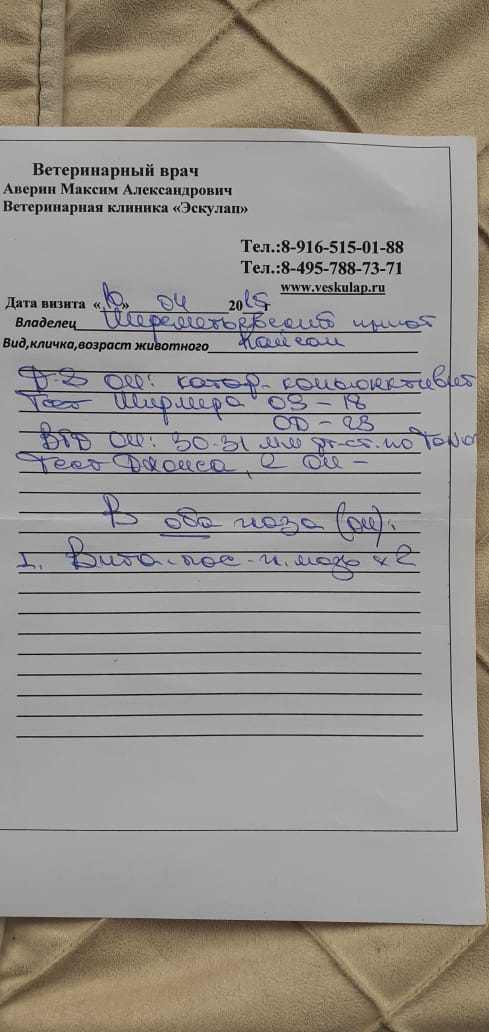 Ветеринарный врач
Аверин Максим Александрович
Ветеринарная клиника «Эскулап»
Тел.:8-916-515-01-88
Тел.:8-495-788-73-71
www.veskulap.ru
Дата визита «10» 04 20
Владелец Шереметьевский приют
Вид,кличка,возраст животного
Д-З OU: катар. конъюнктивит
Тест Ширмера OS - 18
OD - 23
ВГД OU: 30-31 мм рт.ст. по
Тест Джонса, 2 OU -
В оба глаза (OU):
1. Вита-пос - г. мазь x 2